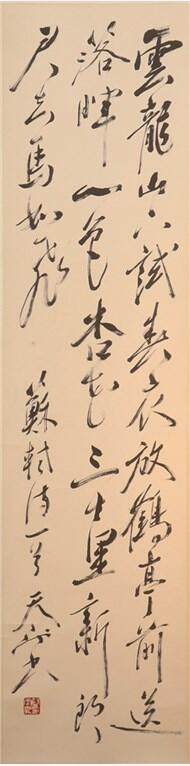 雲龍山下試春衣放鶴亭前送
落暉一色杏花三十里新郎
君去馬如飛
蘇軾詩一首